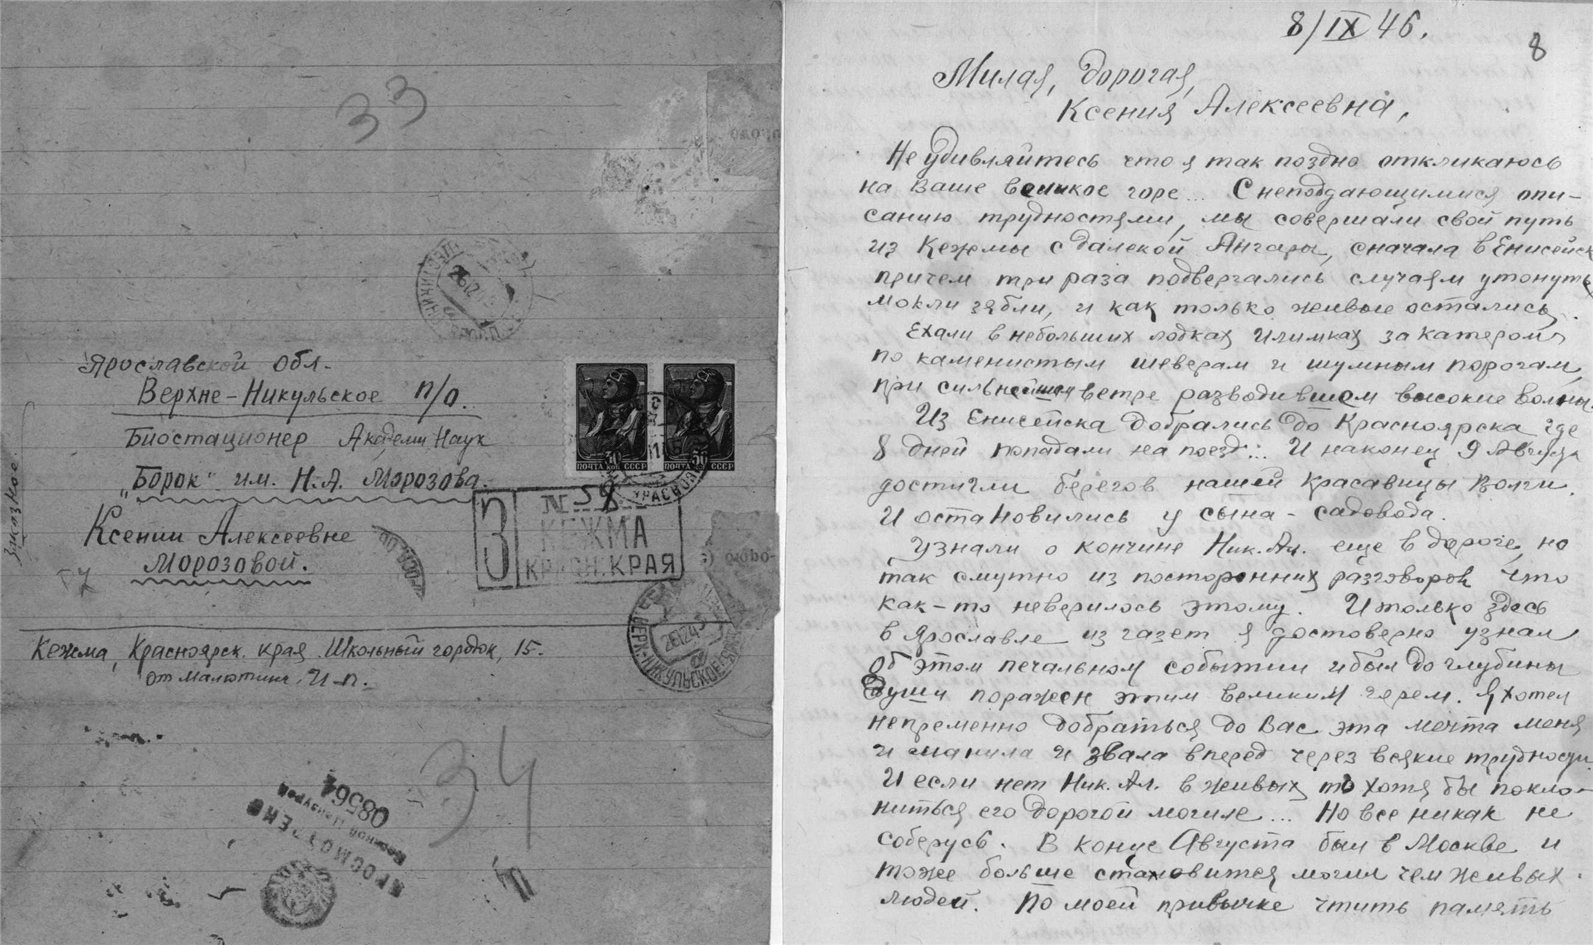 33
Ярославской обл.
Верхне-Никульское п/о.
Биостационер Академии Наук
"Борок" им. Н.А. Морозова.
Ксении Алексеевне
Морозовой.
заказное.
ПОЧТА СССР
30 коп
ПОЧТА СССР
З
№ 58
КЕЖМА
КРАСН. КРАЯ
Кежма, Красноярск. края. Школьный городок, 15.
от Малютина И-п.
34
ПРОСМОТРЕНО
Военной Цензурой
08564
8/IX 46.
8
Милая, дорогая,
Ксения Алексеевна,
Не удивляйтесь что я так поздно откликаюсь
на Ваше великое горе... С неподдающимися опи-
санию трудностями, мы совершали свой путь
из Кежмы с далекой Ангары, сначала в Енисейск
причем три раза подвергались случаям утонуть
мокли зябли, и как только живые остались.
Ехали в небольших лодках илимках за катером
по каменистым шеверам и шумным порогам,
при сильнейшем ветре разводившем высокие волны.
Из Енисейска добрались до Красноярска где
8 дней попадали на поезд... И наконец 9 Августа
достигли берегов нашей красавицы Волги.
И остановились у сына - садовода.
Узнали о кончине Ник. Ал. еще в дороге, но
так смутно из посторонних разговоров что
как-то неверилось этому. И только здесь
в Ярославле из газет я достоверно узнал
об этом печальном событии и был до глубины
души поражен этим великим горем. Я хотел
непременно добраться до Вас эта мечта меня
и манила и звала вперед через всякие трудности.
И если нет Ник. Ал. в живых, то хотя бы покло-
ниться его дорогой могиле... Но все никак не
соберусь. В конце Августа был в Москве и
тоже больше становится могил чем живых
людей. По моей привычке чтить память